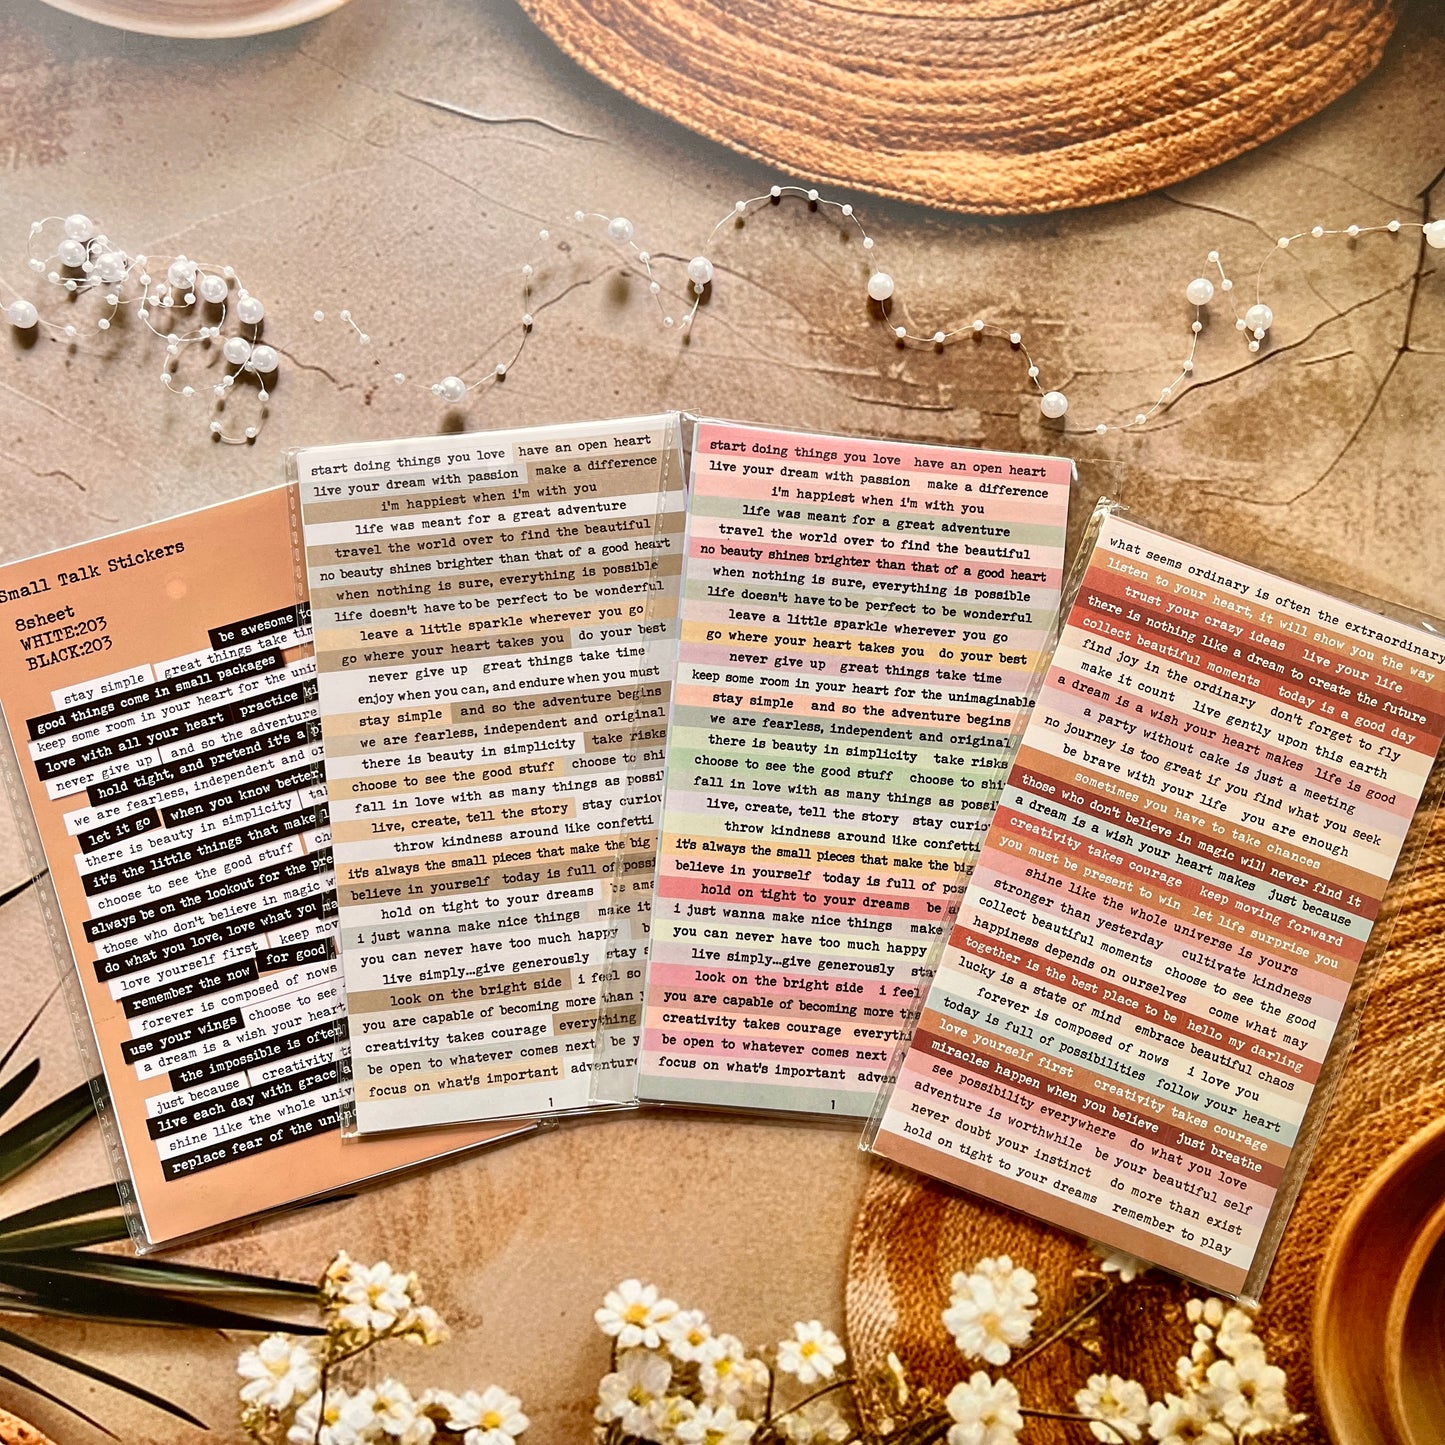 Small Talk Stickers
8sheet
WHITE:203
BLACK:203
be awesome
stay simple great things take tim
good things come in small packages
keep some room in your heart for the unim
love with all your heart practice ki
never give up and so the adventure
hold tight, and pretend it's a p
we are fearless, independent and or
let it go when you know better,
there is beauty in simplicity ta
it's the little things that make l
choose to see the good stuff ch
always be on the lookout for the pre
those who don't believe in magic w
do what you love, love what you
love yourself first keep mov
remember the now for good
forever is composed of nows
use your wings choose to see
a dream is a wish your heart
the impossible is often
just because creativity ta
live each day with grace a
shine like the whole univ
replace fear of the unk
start doing things you love have an open heart
live your dream with passion make a difference
i'm happiest when i'm with you
life was meant for a great adventure
travel the world over to find the beautiful
no beauty shines brighter than that of a good heart
when nothing is sure, everything is possible
life doesn't have to be perfect to be wonderful
leave a little sparkle wherever you go
go where your heart takes you do your best
never give up great things take time
enjoy when you can, and endure when you must
stay simple and so the adventure begins
we are fearless, independent and original
there is beauty in simplicity take risks
choose to see the good stuff choose to shi
fall in love with as many things as possi
live, create, tell the story stay curiou
throw kindness around like confetti
it's always the small pieces that make the big
believe in yourself today is full of possi
hold on tight to your dreams be ama
i just wanna make nice things make it
you can never have too much happy b
live simply...give generously stay s
look on the bright side i feel so
you are capable of becoming more than y
creativity takes courage everything
be open to whatever comes next be y
focus on what's important adventure
1
start doing things you love have an open heart
live your dream with passion make a difference
i'm happiest when i'm with you
life was meant for a great adventure
travel the world over to find the beautiful
no beauty shines brighter than that of a good heart
when nothing is sure, everything is possible
life doesn't have to be perfect to be wonderful
leave a little sparkle wherever you go
go where your heart takes you do your best
never give up great things take time
keep some room in your heart for the unimaginable
stay simple and so the adventure begins
we are fearless, independent and original
there is beauty in simplicity take risks
choose to see the good stuff choose to shi
fall in love with as many things as possi
live, create, tell the story stay curio
throw kindness around like confetti
it's always the small pieces that make the big
believe in yourself today is full of pos
hold on tight to your dreams be a
i just wanna make nice things make
you can never have too much happy
live simply...give generously sta
look on the bright side i feel
you are capable of becoming more th
creativity takes courage everythi
be open to whatever comes next
focus on what's important adven
1
what seems ordinary is often the extraordinary
listen to your heart, it will show you the way
trust your crazy ideas live your life
there is nothing like a dream to create the future
collect beautiful moments today is a good day
find joy in the ordinary don't forget to fly
make it count live gently upon this earth
a dream is a wish your heart makes life is good
a party without cake is just a meeting
no journey is too great if you find what you seek
be brave with your life you are enough
sometimes you have to take chances
those who don't believe in magic will never find it
a dream is a wish your heart makes just because
creativity takes courage keep moving forward
you must be present to win let life surprise you
shine like the whole universe is yours
stronger than yesterday cultivate kindness
collect beautiful moments choose to see the good
happiness depends on ourselves come what may
together is the best place to be hello my darling
lucky is a state of mind embrace beautiful chaos
forever is composed of nows i love you
today is full of possibilities follow your heart
love yourself first creativity takes courage
miracles happen when you believe just breathe
see possibility everywhere do what you love
adventure is worthwhile be your beautiful self
never doubt your instinct do more than exist
hold on tight to your dreams remember to play